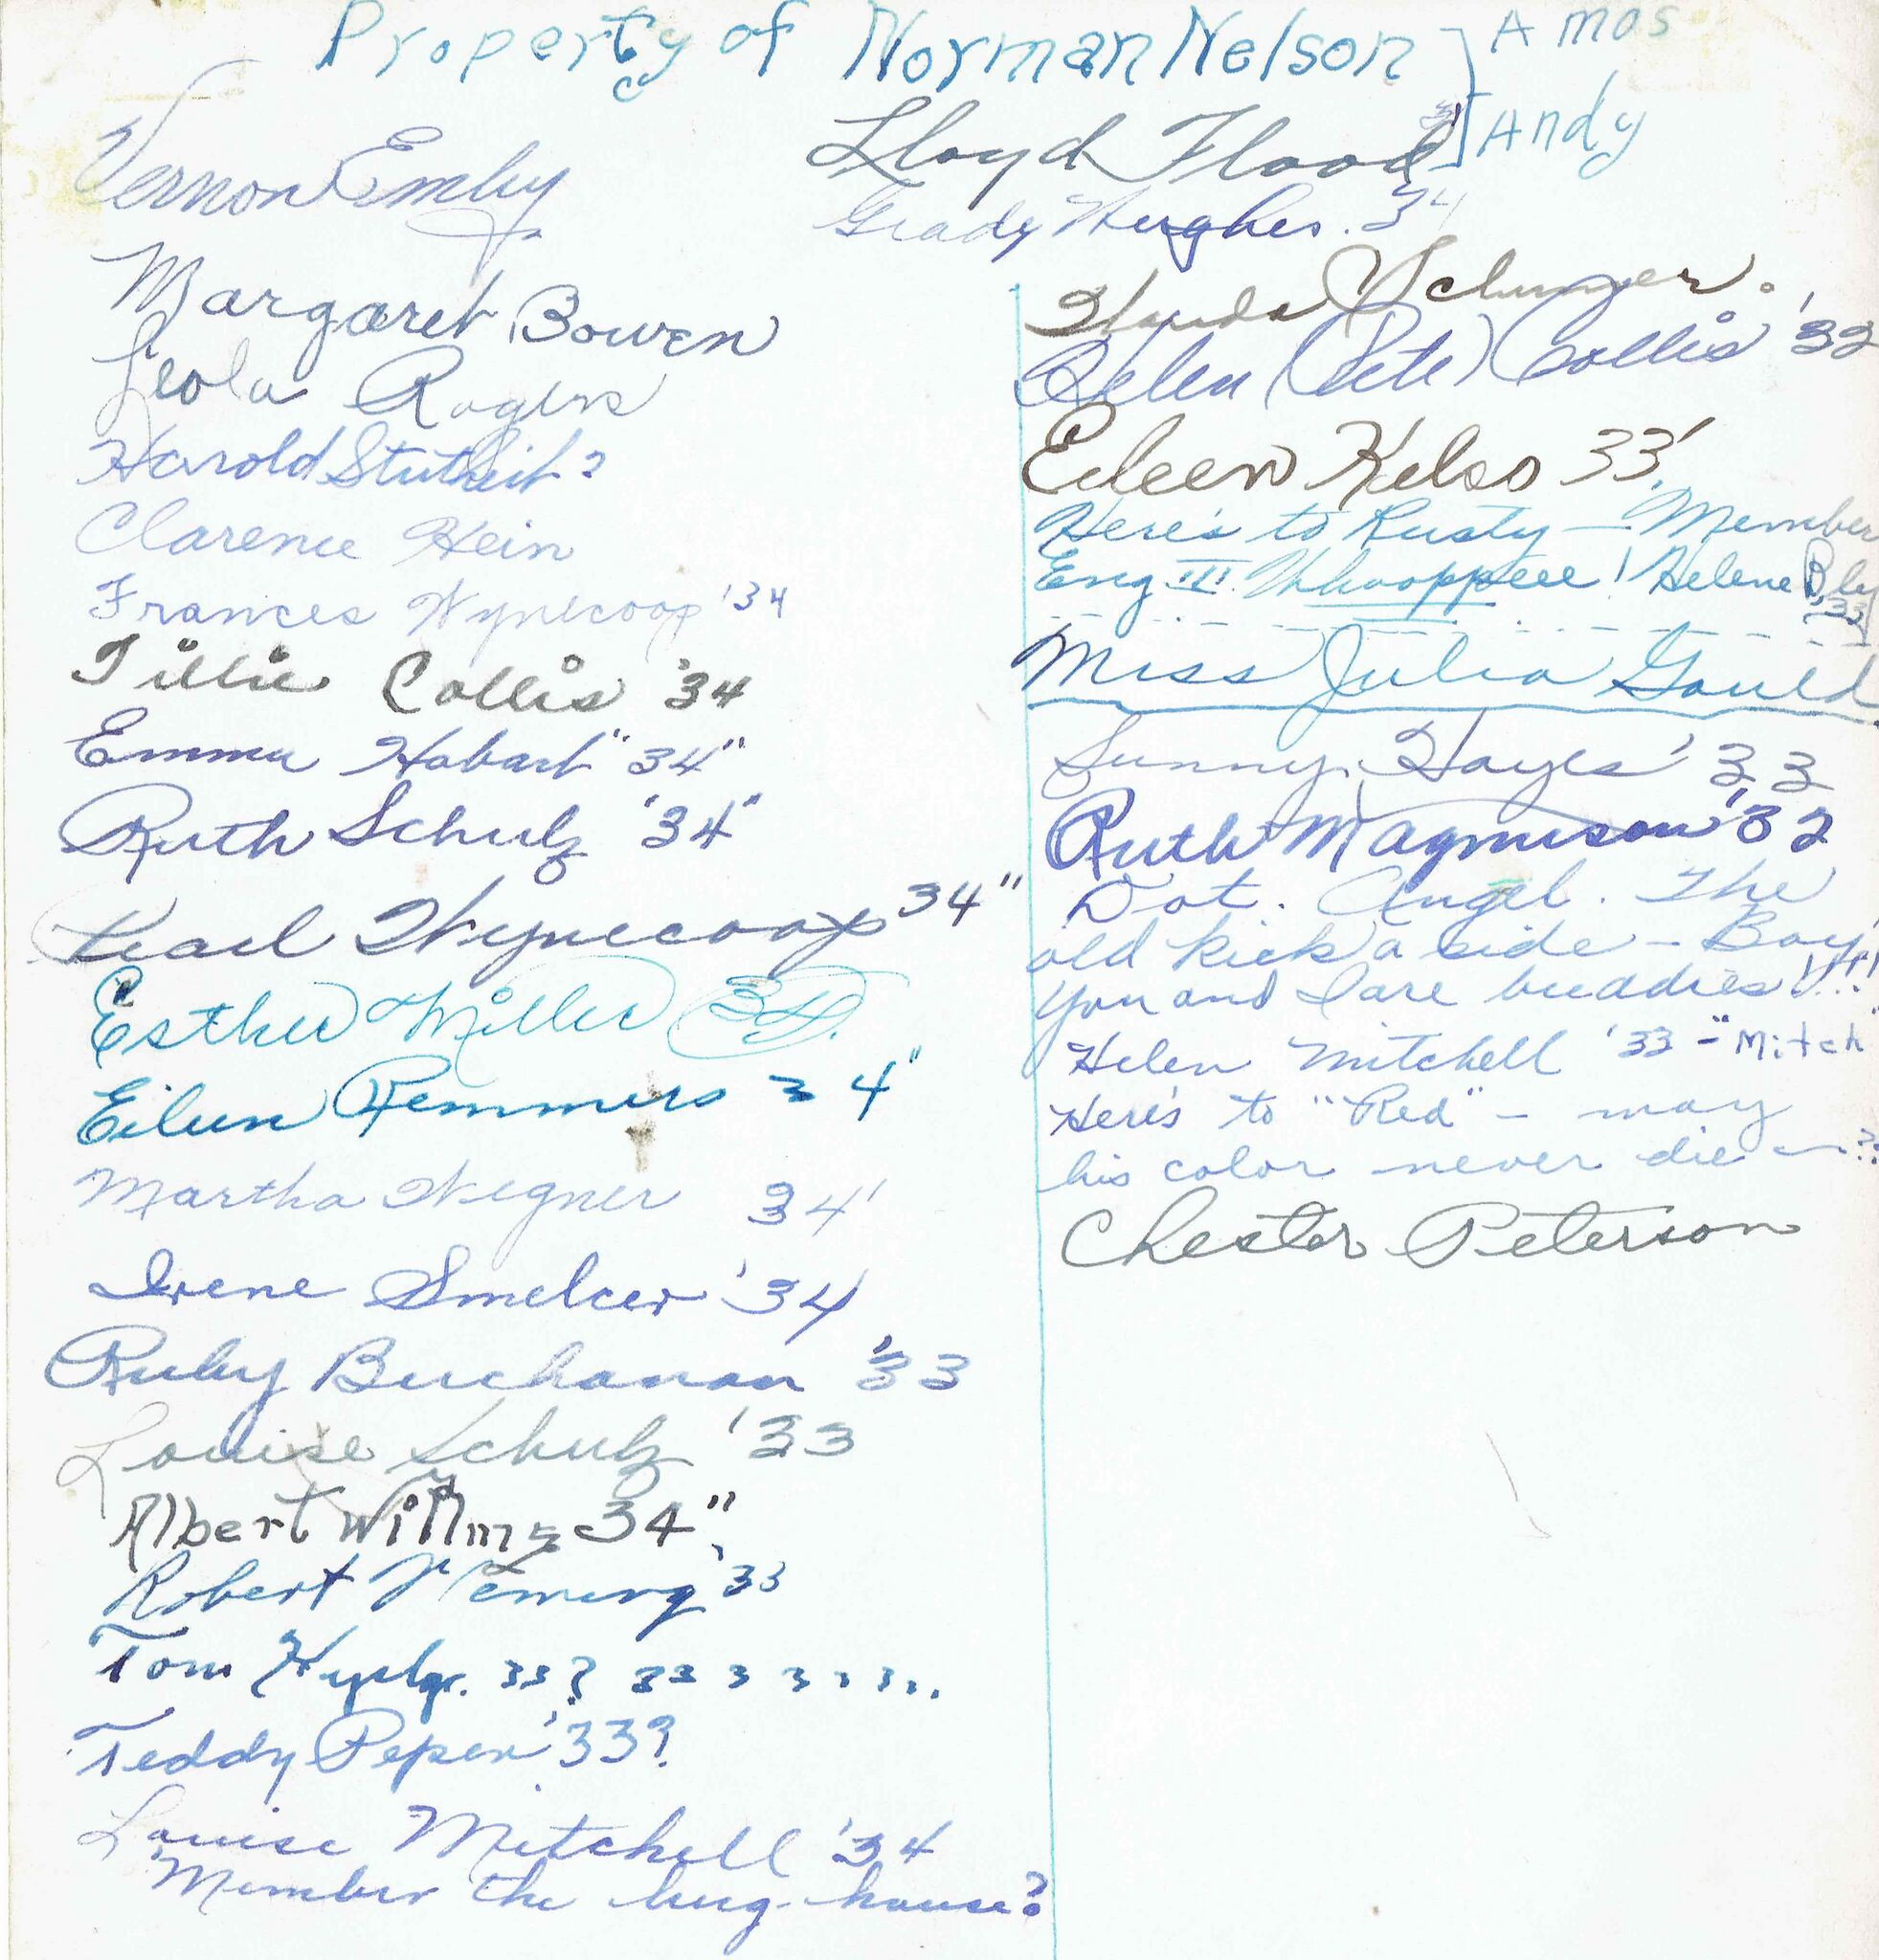 Property of Norman Nelson
Amos
Andy
Lloyd Flood
Grady Hughes. 34
Vernon Emby
Margaret Bowen
Leola Rogers
Harold Stutheit?
Clarence Hein
Frances Wynecoop '34
Tillie Collis '34
Emma Hobart "34"
Ruth Schulz "34"
Pearl Wynecoop 34"
Esther Miller 34.
Eileen Remmers 34"
Martha Wegner 34'
Irene Smelcer '34
Ruby Buchanan '33
Louise Schulz '33
Albert Willms 34"
Robert Fleming '33
Tom 33? 33 3 3 3 3...
Teddy Peper '33?
Louise Mitchell '34
'Member the bug-house?
Helen (Pete) Collis '32
Eileen Kelso 33'
Here's to Rusty — Member
Eng III. Whooppeee! Helene
33
Miss Julia Gould
Sunny Hayes '33
Ruth Magnuson '32
Dot. Angel. The
old kick a side - Boy,
You and I are buddies!!!!
Helen Mitchell '33 - "Mitch"
Here's to "Red" - may
his color never die —??
Chester Peterson